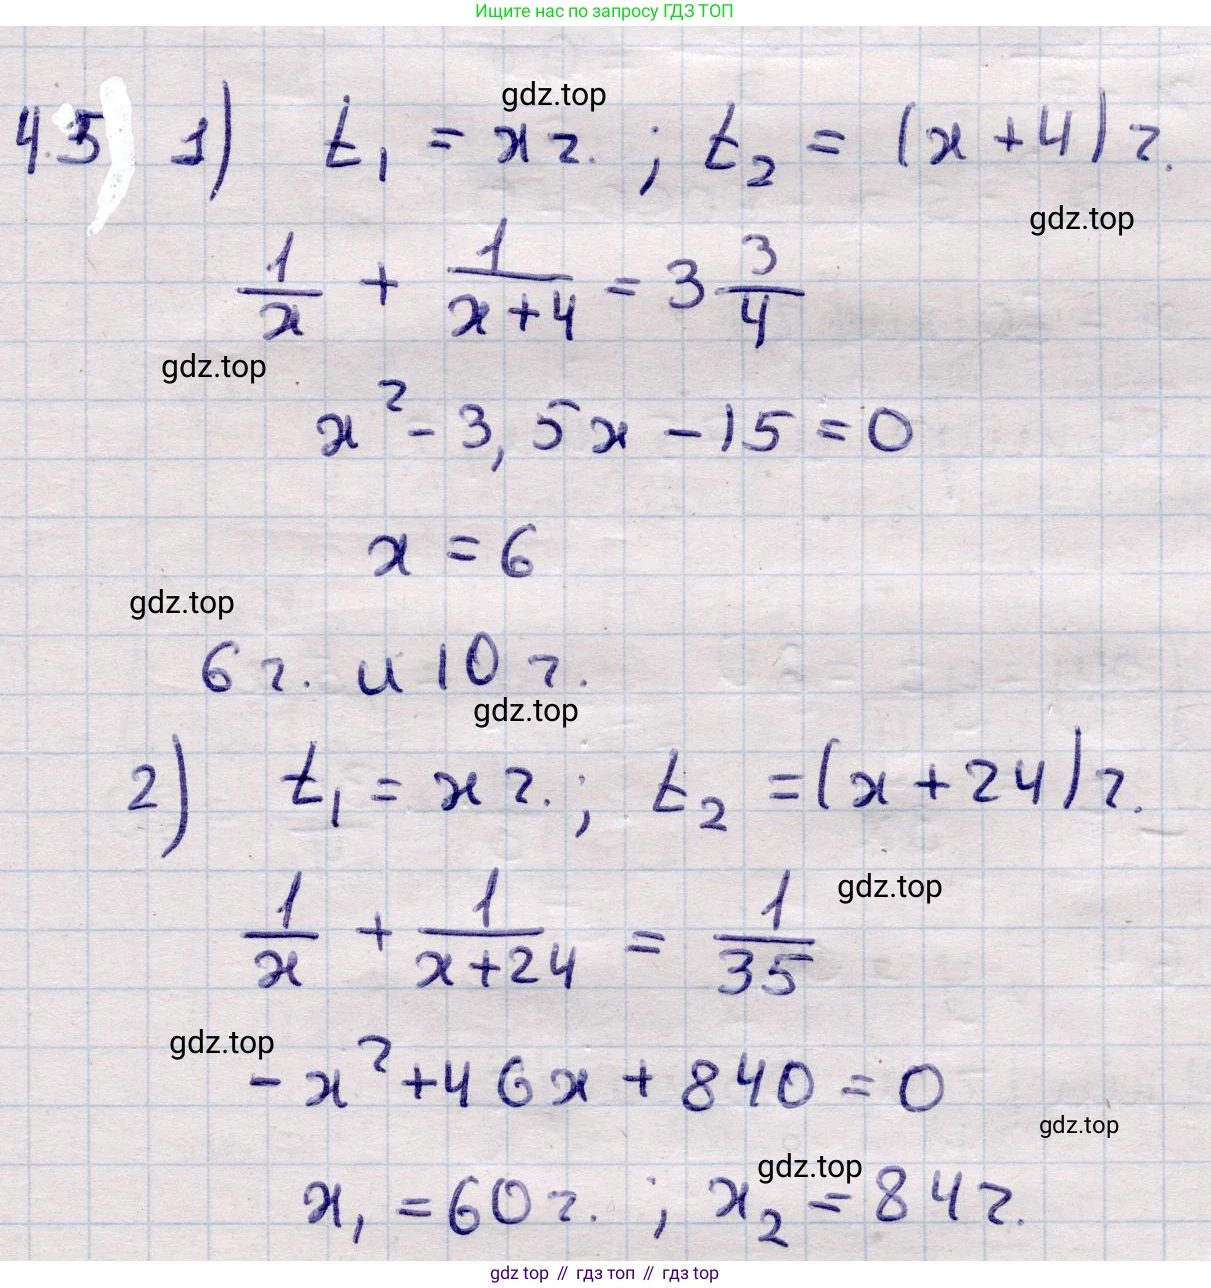 Ищите нас по запросу ГДЗ ТОП
gdz.top
4.5) 1) t₁ = x ч. ; t₂ = (x + 4) ч.
gdz.top
1/x + 1/(x+4) = 3 3/4
gdz.top
x² - 3,5x - 15 = 0
x = 6
gdz.top
6 ч. и 10 ч.
gdz.top
2) t₁ = x ч. ; t₂ = (x + 24) ч.
gdz.top
1/x + 1/(x+24) = 1/35
gdz.top
- x² + 46x + 840 = 0
gdz.top
gdz.top
x₁ = 60 ч. ; x₂ = 84 ч.
gdz top // гдз топ // gdz top